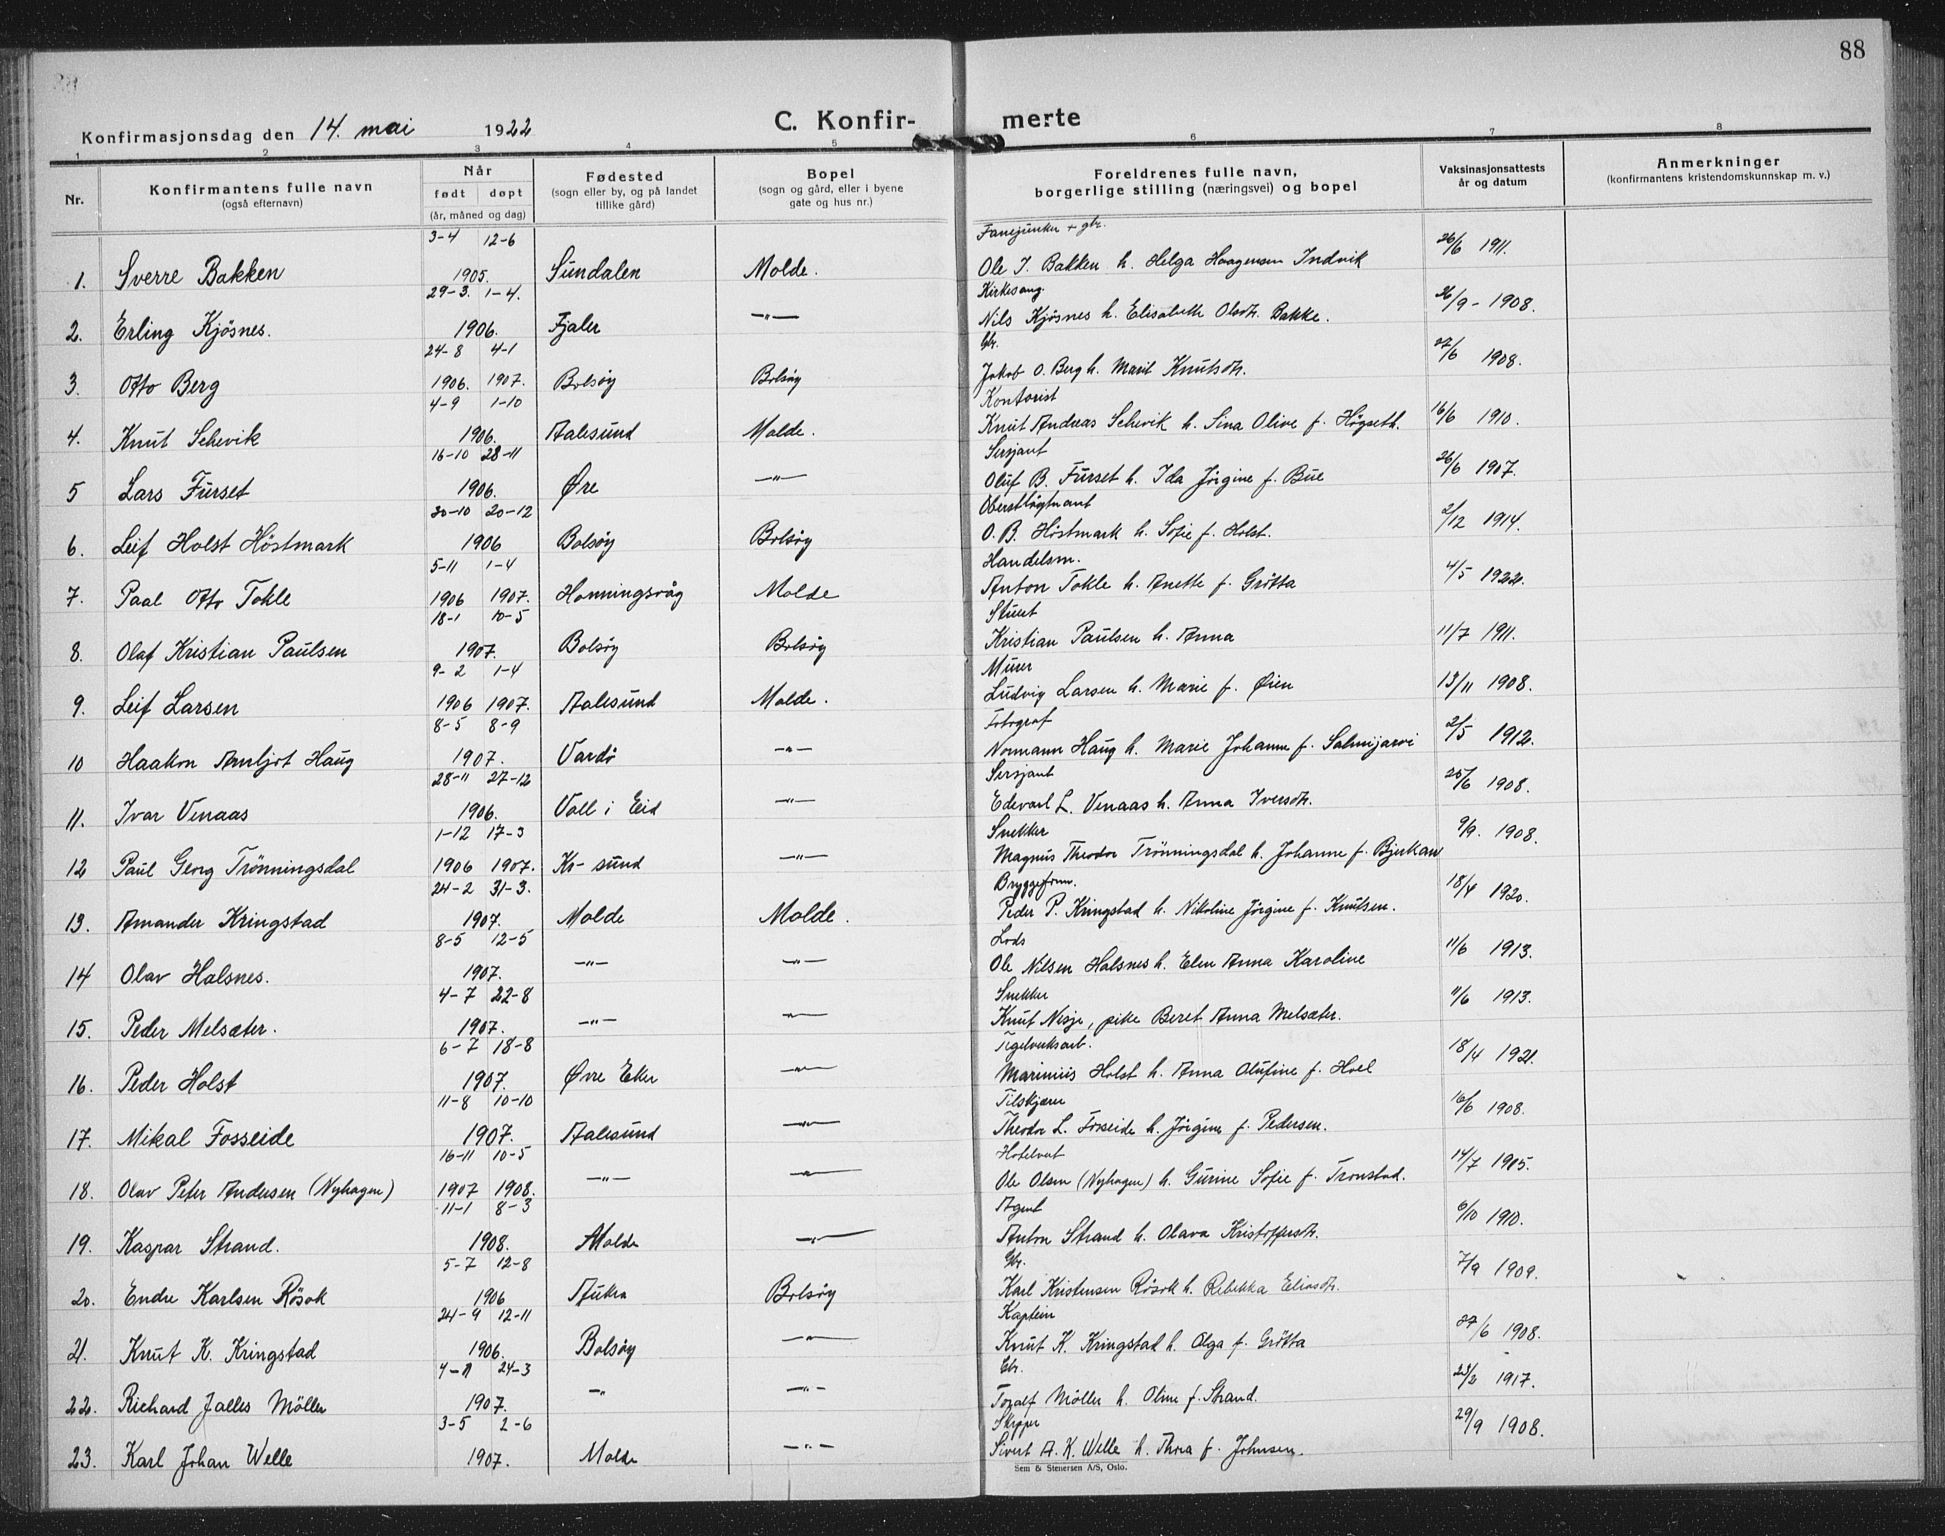 88
Konfirmasjonsdag den 14. mai 1922
C. Konfir- merte
1 2 3 4 5 6 7 8
Nr.
Konfirmantens fulle navn
(også efternavn)
Når
født døpt
(år, måned og dag)
Fødested
(sogn eller by, og på landet
tillike gård)
Bopel
(sogn og gård, eller i byene
gate og hus nr.)
Foreldrenes fulle navn,
borgerlige stilling (næringsvei) og bopel
Vaksinasjonsattests
år og datum
Anmerkninger
(konfirmantens kristendomskunnskap m. v.)
3-4 12-6 Fanejunker + gbr.
1. Sverre Bakken 1905. Sundalen Molde. Ole J. Bakken h. Helga Haagensen Indvik 26/6 1911.
29-3. 1-4. Kirkesang.
2. Erling Kjösnes. 1906. Fjaler —"— Nils Kjösnes h. Elisabeth Olsdtr. Bakke. 26/9 - 1908.
24-8 4-1 Gbr.
3. Otto Berg 1906. 1907. Bolsöy Bolsöy Jakob O. Berg h. Marit Knutsdtr. 27/6 1908.
4-9 1-10 Kontorist
4. Knut Sehevik 1906. Aalesund Molde. Knut Andreas Sehevik h. Sina Olive f. Högseth. 16/6 1910.
16-10 28-11 Sersjant
5 Lars Furset 1906. Øre —"— Oluf B. Furset h. Ida Jörgine f. Bue 26/6 1907.
30-10 20-12 Oberstlöytnant
6. Leif Holst Höstmark 1906 Bolsöy Bolsöy O. B. Höstmark h. Sofie f. Holst. 2/12 1914.
5-11 1-4 Handelsm.
7. Paal Otto Tokle 1906 1907. Honningsvåg Molde Anton Tokle h. Anette f. Grötta 4/5 1922.
18-1 10-5 Stuert
8. Olaf Kristian Paulsen 1907. Bolsöy Bolsöy Kristian Paulsen h. Anna 11/7 1911.
9-2 1-4 Murer
9. Leif Larsen 1906 1907. Aalesund Molde. Ludvig Larsen h. Marie f. Øien 13/11 1908.
8-5 8-9 Fotograf
10 Haakon Arnljot Haug 1907. Vardö —"— Normann Haug h. Marie Johanne f. Salmijarvi 2/5 1912.
28-11 27-12 Sersjant
11. Ivar Venaas 1906. Voll i Eid —"— Edevart L. Venaas h. Anna Iversdtr. 25/6 1908.
1-12 17-3 Snekker
12 Paul Georg Trönningsdal 1906 1907. Kr-sund —"— Magnus Theodor Trönningsdal h. Johanne f. Bjerkan 9/9. 1908.
24-2 31-3. Bryggeform.
13. Amander Kringstad 1907. Molde Molde. Peder P. Kringstad h. Nikoline Jörgine f. Knutsen. 18/4 1920.
8-5 12-5 Lods
14 Olav Halsnes. 1907. —"— —"— Ole Nilsen Halsnes h. Elen Anna Karoline 11/6 1913.
4-7 22-8 Snekker
15. Peder Melsæter. 1907. —"— —"— Knut Nesje, pike Beret Anna Melsæter. 11/6 1913.
6-7 18-8 Tegelverksarb.
16. Peder Holst 1907. Øvre Eker —"— Marinius Holst h. Anna Olufine f. Hoel 18/4 1921.
11-8 10-10 Tilskjærer
17. Mikal Fosseide 1907. Aalesund —"— Theodor L. Fosseide h. Jörgine f. Pedersen. 16/6 1908.
16-11 10-5 Hotelvert
18. Olav Peter Andersen (Nyhagen) 1907 1908. —"— —"— Ole Olsen (Nyhagen) h. Gurine Sofie f. Tronstad. 14/7 1905.
11-1 8-3 Agent
19. Kaspar Strand. 1908. Molde —"— Anton Strand h. Olava Kristoffersdtr. 6/10 1910.
5-7 12-8 Gbr.
20. Endre Karlsen Rösok 1906 Aukra Bolsöy Karl Kristensen Rösok h. Rebekka Eliasdtr. 7/9 1909.
24-9 12-11 Kaptein
21. Knut K. Kringstad 1906. Bolsöy —"— Knut K. Kringstad h. Olga f. Grötta 27/6 1908.
4-11 24-3 Gbr.
22. Richard Jalles Möller 1907. —"— —"— Toralf Möller h. Oline f. Strand. 23/2 1917.
3-5 2-6 Skipper
23. Karl Johan Welle 1907. Molde —"— Sivert A. K. Welle h. Thora f. Johnsen. 29/9 1908.
Sem & Stenersen A/S, Oslo.